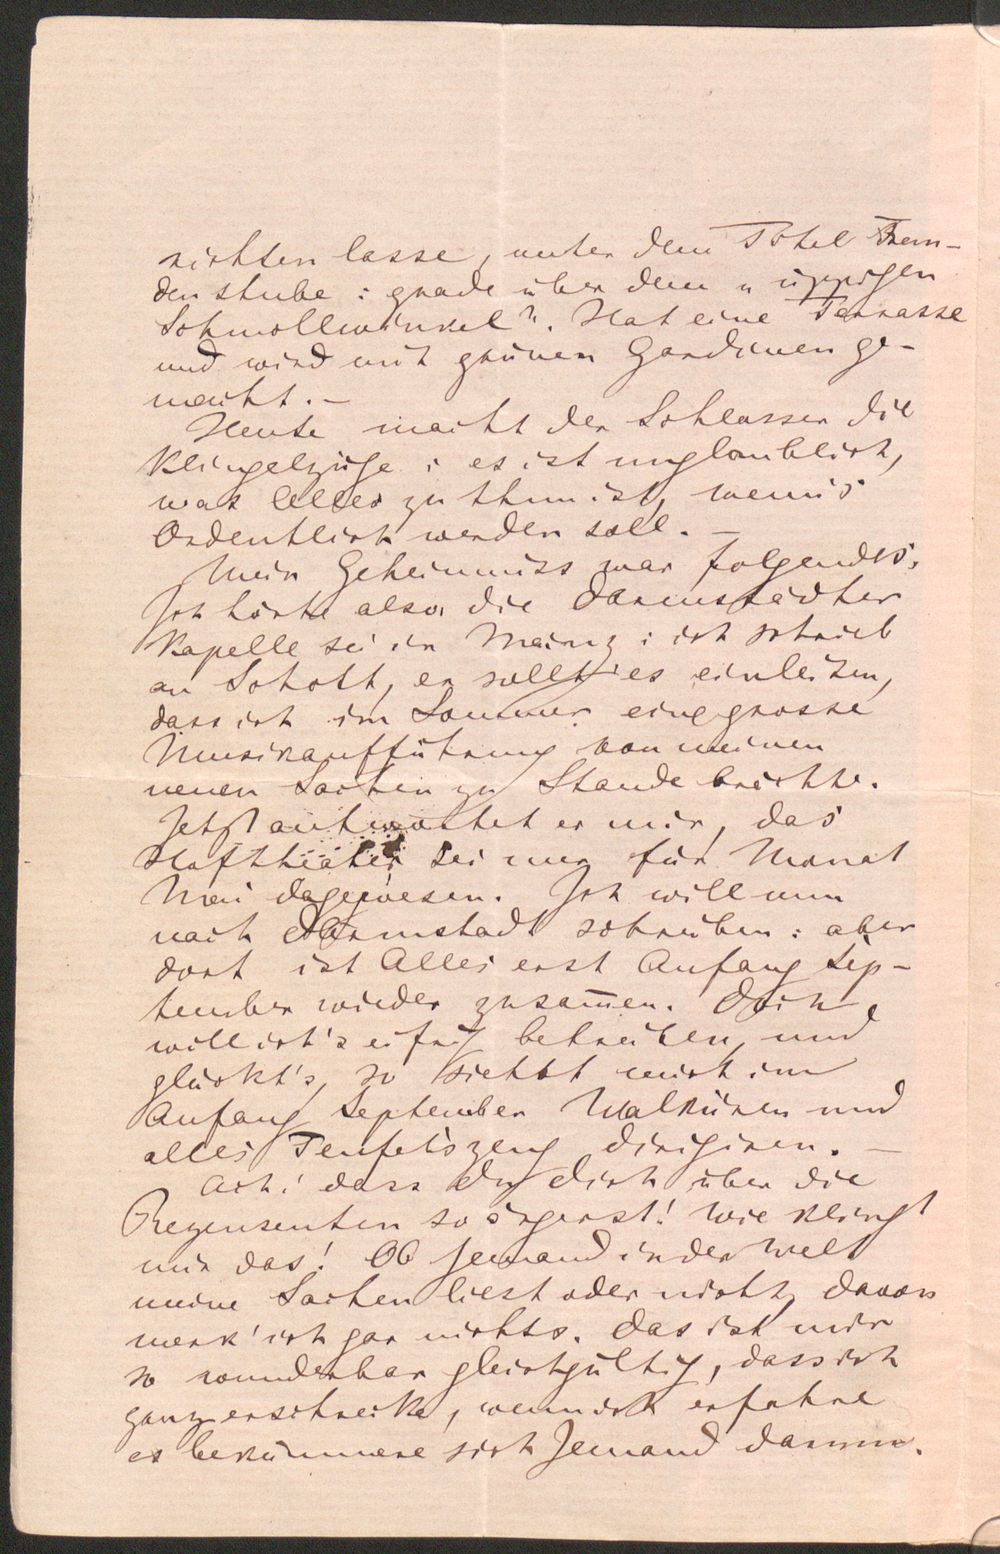 richten lasse, unter dem Titel Frem-
denstube: grade über dem „üppigen
Schmollwinkel". Hat eine Terrasse
und wird mit grünen Gardinen ge-
macht. –
Heute macht der Schlosser die
Klingelzüge: es ist unglaublich,
was Alles zu thun ist, wenn's
Ordentlich werden soll. –
Mein Geheimniss war folgendes.
Ich hörte also, die Darmstädter
Kapelle sei in Mainz: ich schrieb
an Schott, er sollt' es einleiten,
dass ich im Sommer eine grosse
Musikaufführung von meinen
neuen Sachen zu Stande brächte.
Jetzt antwortet er mir, das
Hoftheater sei nur für Monat
Mai dagewesen. Ich will nun
nach Darmstadt schreiben: aber
dort ist Alles erst Anfang Sep-
tember wieder zusam̄en. Doch
will ich's eifrig betreiben, und
glückt's, so siehst mich im
Anfang September Walküren und
alles Teufelszeug dirigiren. –
Ach! dass Du dich über die
Rezensenten so ärgerst! Wie klingt
mir das! Ob Jemand in der Welt
meine Sachen liest oder nicht, davon
merk' ich gar nichts. Das ist mir
so wunderbar gleichgültig, dass ich
ganz erschrecke, wenn ich erfahre
es bekümmere sich Jemand darum.